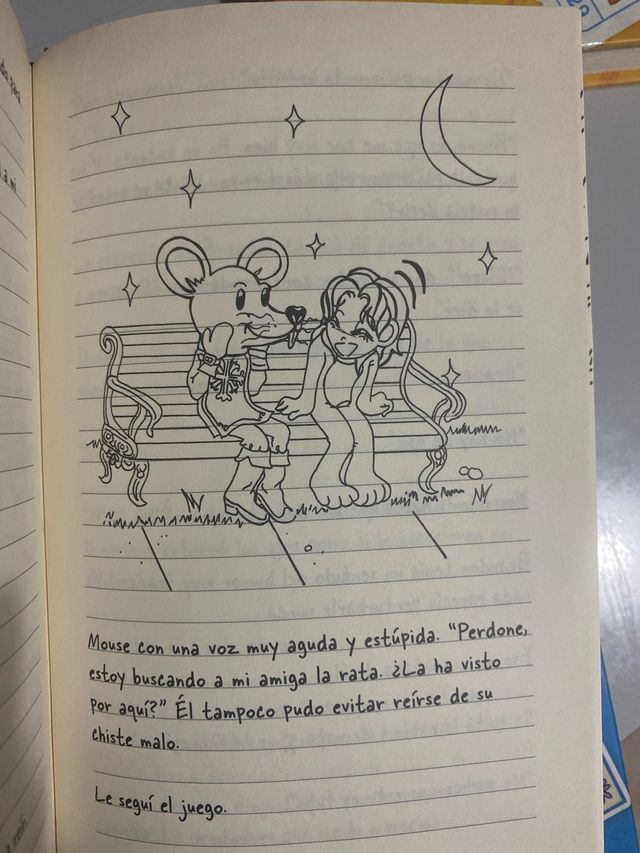 Mouse con una voz muy aguda y estúpida. “Perdone,
estoy buscando a mi amiga la rata. ¿La ha visto
por aquí?” Él tampoco pudo evitar reírse de su
chiste malo.
Le seguí el juego.